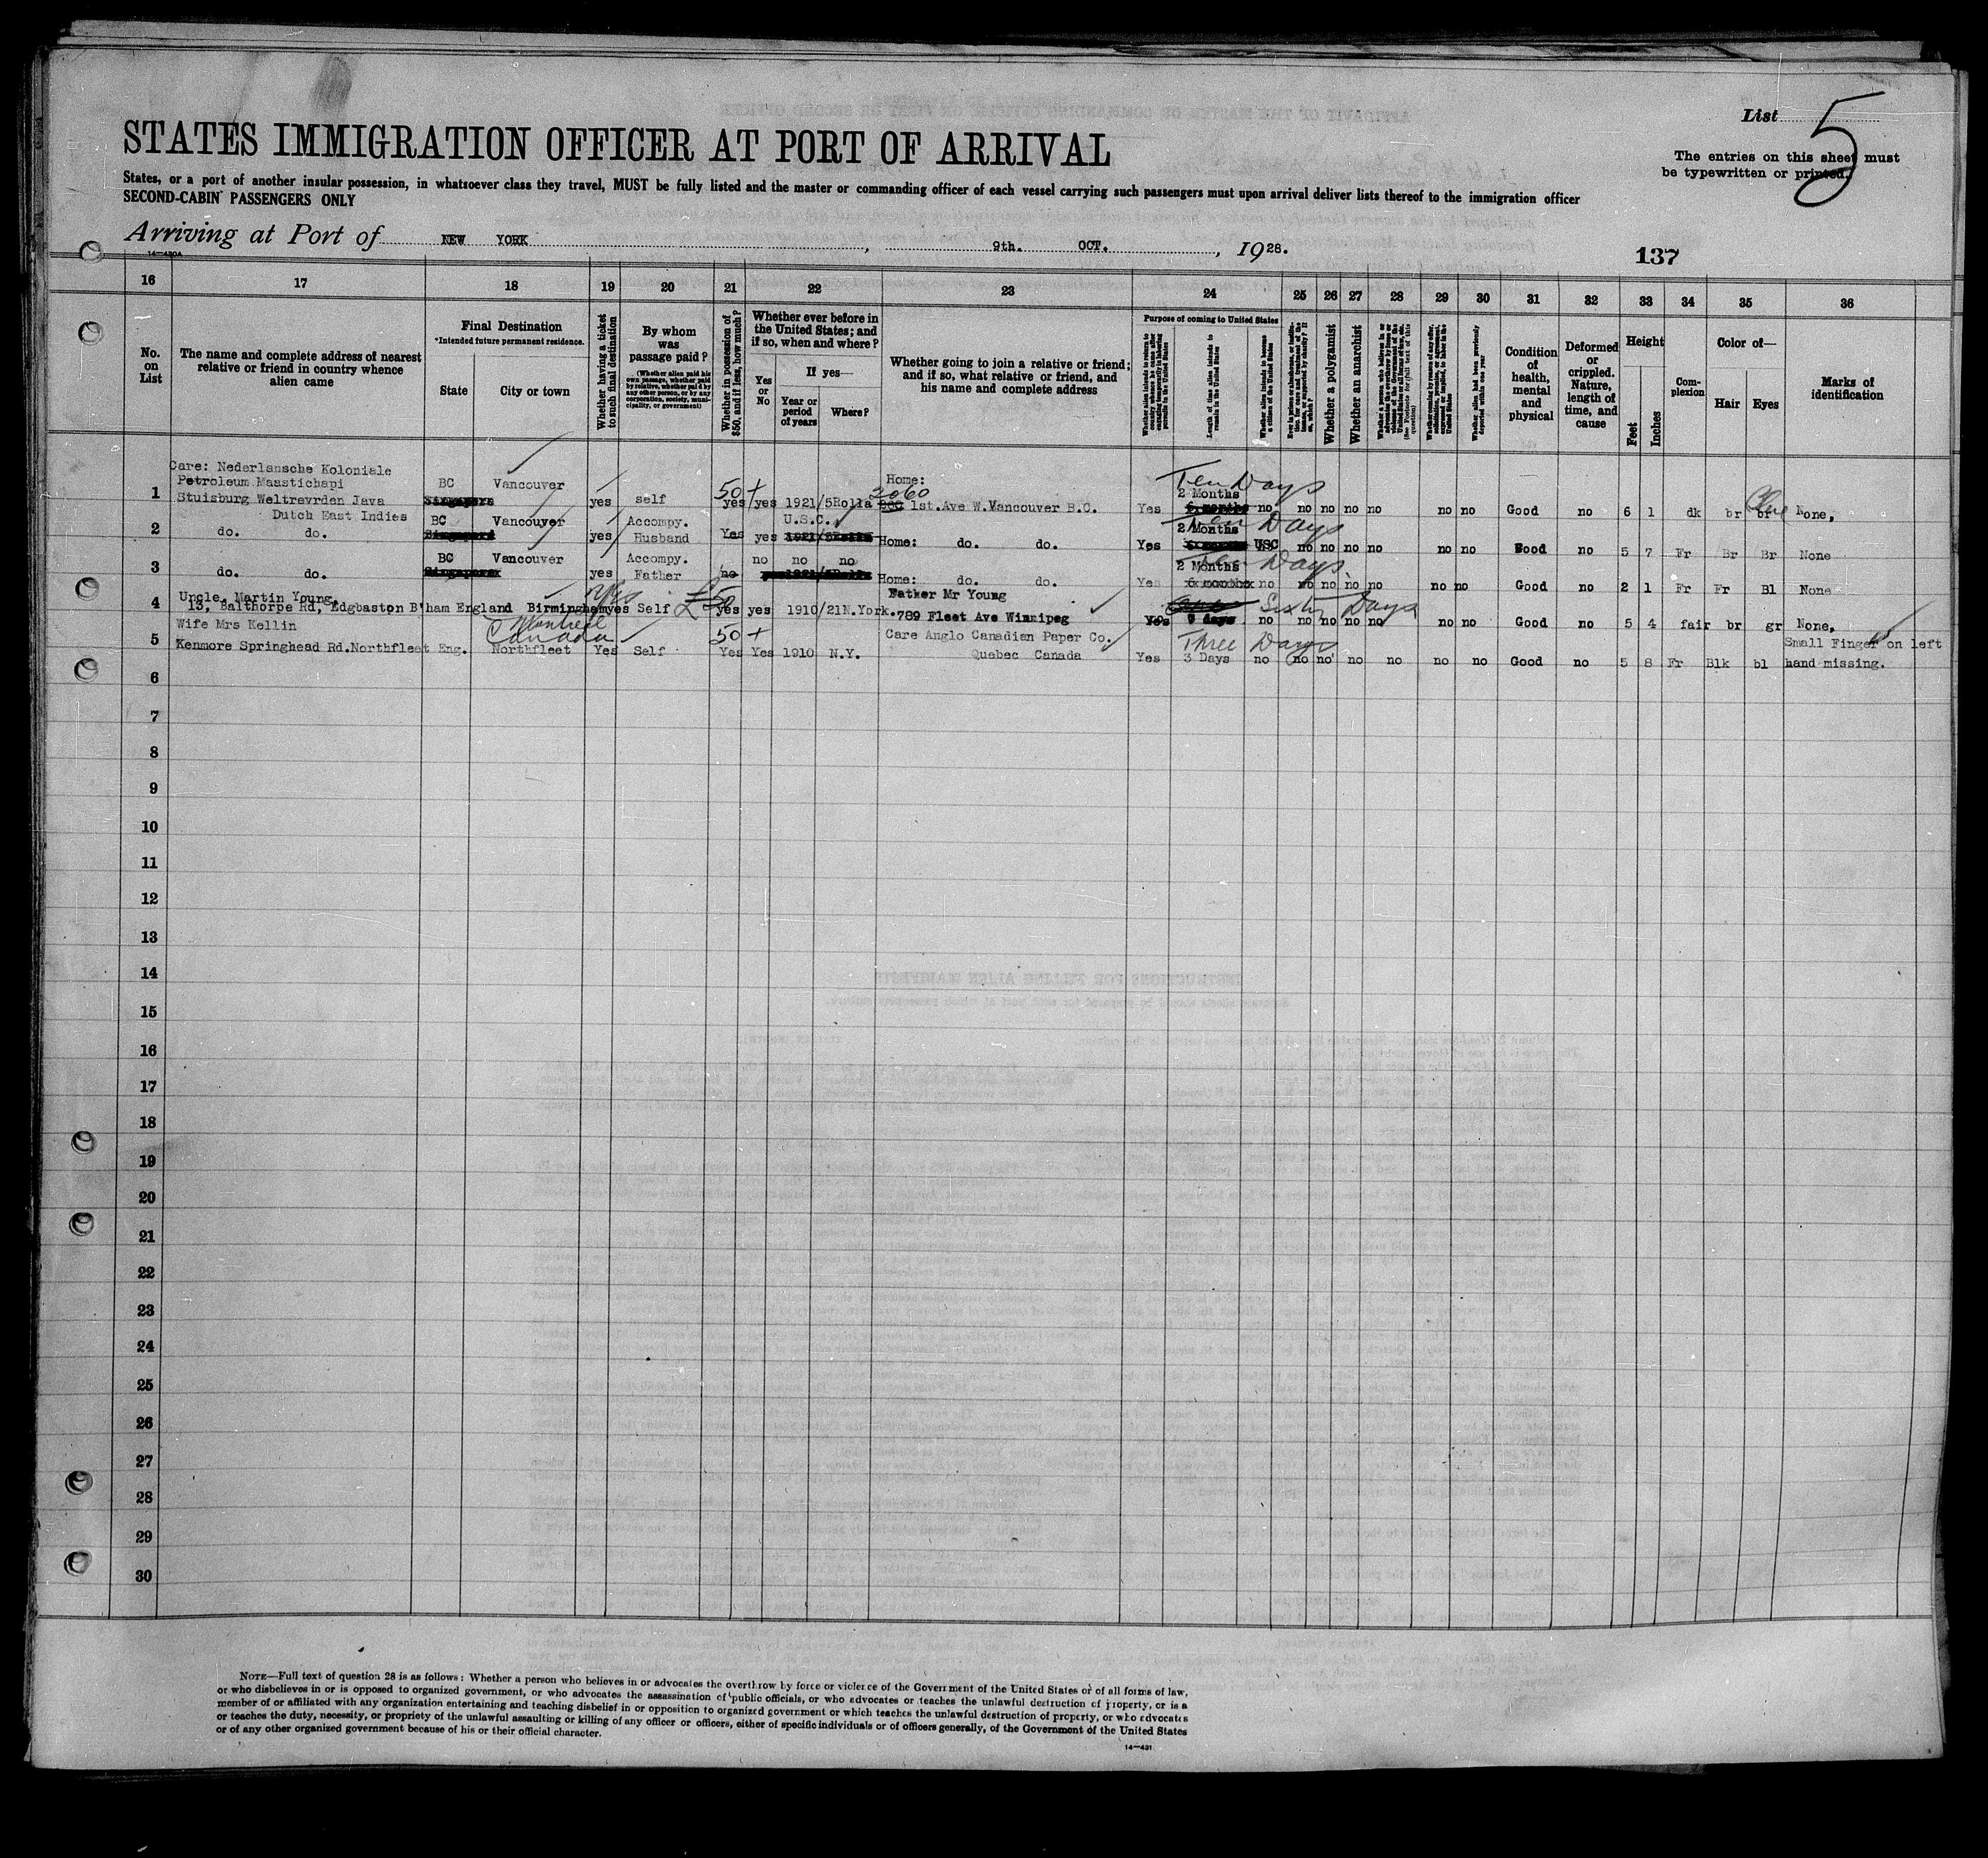 List 5
STATES IMMIGRATION OFFICER AT PORT OF ARRIVAL
The entries on this sheet must
be typewritten or printed.
States, or a port of another insular possession, in whatsoever class they travel, MUST be fully listed and the master or commanding officer of each vessel carrying such passengers must upon arrival deliver lists thereof to the immigration officer
SECOND-CABIN PASSENGERS ONLY
Arriving at Port of NEW YORK, 9th. OCT., 1928.
137
14-430A
16 17 18 19 20 21 22 23 24 25 26 27 28 29 30 31 32 33 34 35 36
No. on List
The name and complete address of nearest relative or friend in country whence alien came
Final Destination
*Intended future permanent residence.
State
City or town
Whether having a ticket to such final destination
By whom was passage paid?
(Whether alien paid his own passage, whether paid by relative, whether paid by any other person, or by any corporation, society, municipality, or government)
Whether in possession of $50, and if less, how much?
Whether ever before in the United States; and if so, when and where?
Yes or No
If yes—
Year or period of years
Where?
Whether going to join a relative or friend; and if so, what relative or friend, and his name and complete address
Purpose of coming to United States
Length of time alien intends to remain in the United States
Whether alien intends to become a citizen of the United States
Whether a polygamist
Whether an anarchist
Whether alien had been previously deported within one year
Condition of health, mental and physical
Deformed or crippled. Nature, length of time, and cause
Height
Feet
Inches
Complexion
Color of—
Hair
Eyes
Marks of identification
Care: Nederlansche Koloniale
Petroleum Maastichapi
1 Stuisburg Weltrevrden Java BC Vancouver yes self 50+ yes yes 1921/5 Rolla Home: 2060 1st.Ave W.Vancouver B.C. Yes Ten Days 2 Months no no no no no no no Good no 6 1 dk br br Blue None,
Dutch East Indies
2 do. do. BC Vancouver yes Accompy. Husband Yes yes U.S.C. Home: do. do. Yes Ten Days 2 Months USC no no no no no no Good no 5 7 Fr Br Br None
3 do. do. BC Vancouver yes Accompy. Father no no no no Home: do. do. Yes Ten Days 2 Months no no no no no no no Good no 2 1 Fr Fr Bl None
Uncle, Martin Young,
4 13, Balthorpe Rd, Edgbaston B'ham England Birmingham yes Self £50 yes yes 1910/21 N.York. Father Mr Young 789 Fleet Ave Winnipeg Sixty Days no no no no no no no Good no 5 4 fair br gr None,
Wife Mrs Kellin
5 Kenmore Springhead Rd.Northfleet Eng. Montreal Canada Northfleet Yes Self 50+ Yes Yes 1910 N.Y. Care Anglo Canadian Paper Co. Quebec Canada Yes Three Days 3 Days no no no no no no no Good no 5 8 Fr Blk bl Small Finger on left hand missing.
6
7
8
9
10
11
12
13
14
15
16
17
18
19
20
21
22
23
24
25
26
27
28
29
30
NOTE—Full text of question 28 is as follows: Whether a person who believes in or advocates the overthrow by force or violence of the Government of the United States or of all forms of law,
or who disbelieves in or is opposed to organized government, or who advocates the assassination of public officials, or who advocates or teaches the unlawful destruction of property, or is a
member of or affiliated with any organization entertaining and teaching disbelief in or opposition to organized government or which teaches the unlawful destruction of property, or who advocates
or teaches the duty, necessity, or propriety of the unlawful assaulting or killing of any officer or officers, either of specific individuals or of officers generally, of the Government of the United States
or of any other organized government because of his or their official character.
14-431